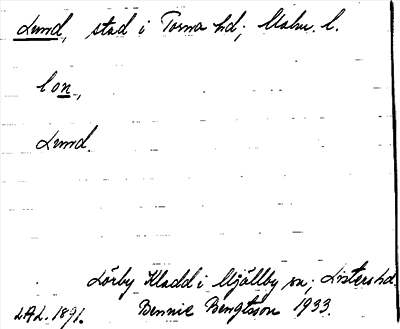 Lund, stad i Torna hd; Malm. l.
lon,
Lund.
Lörby Kladd i Mjällby sn; Listers hd.
LAL. 1891. Bennie Bengtsson 1933.